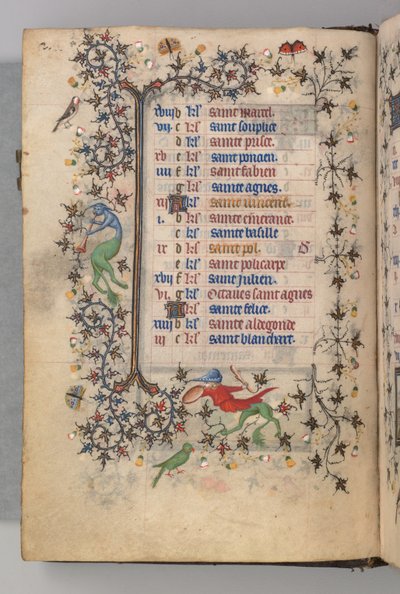 xviij d kls saint marcel.
vij. e kls saint souplice
d kls sainte prisce.
xv e kls saint poncien.
iiij f kls saint fabien
g kls sainte agnes.
xij A kls saint vincent.
i. b kls sainte emerance.
c kls sainte babille
ix d kls saint pol.
e kls saint policarpe
xvij f kls saint julien.
vi. g kls Octaues saint agnes
A kls sainte felice.
xiiij b kls sainte aldegonde
iij c kls saint blanchart.